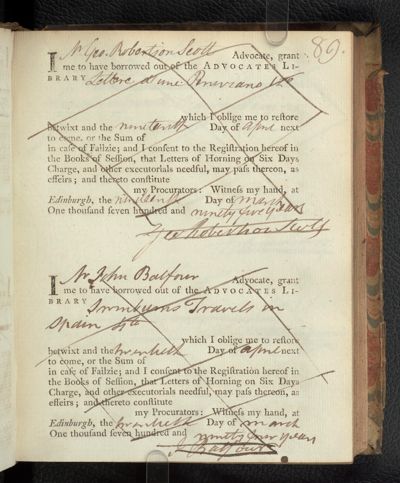 89.
I Mr Geo. Robertson Scott Advocate, grant
me to have borrowed out of the ADVOCATES LI-
BRARY Lettere d'une Peruviano
which I oblige me to restore
betwixt and the nineteenth Day of april next
to come, or the Sum of
in case of Failzie; and I consent to the Registration hereof in
the Books of Session, that Letters of Horning on Six Days
Charge, and other executorials needful, may pass thereon, as
effeirs; and thereto constitute
my Procurators: Witness my hand, at
Edinburgh, the nineteenth Day of march
One thousand seven hundred and ninety five years
Geo Robertson Scott
I Mr John Balfour Advocate, grant
me to have borrowed out of the ADVOCATES LI-
BRARY Swinburns Travels in
Spain 4to
which I oblige me to restore
betwixt and the twentieth Day of april next
to come, or the Sum of
in case of Failzie; and I consent to the Registration hereof in
the Books of Session, that Letters of Horning on Six Days
Charge, and other executorials needful, may pass thereon, as
effeirs; and thereto constitute
my Procurators: Witness my hand, at
Edinburgh, the twentieth Day of march
One thousand seven hundred and ninety five years
J Balfour